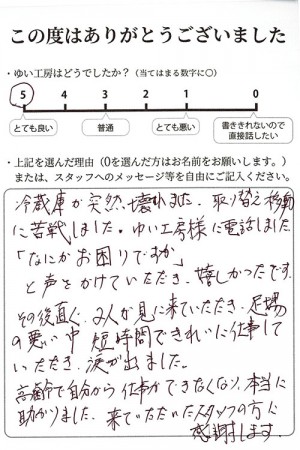 この度はありがとうございました
・ゆい工房はどうでしたか？（当てはまる数字に○）
5 4 3 2 1 0
とても良い 普通 とても悪い 書ききれないので直接話したい
・上記を選んだ理由（0を選んだ方はお名前をお願いします。）
または、スタッフへのメッセージ等を自由にご記入ください。
冷蔵庫が突然、壊れました。取り替え移動
に苦戦しました。ゆい工房様に電話しました
「なにかお困りですか」
と声をかけていただき、嬉しかったです
その後直ぐ、2人が見に来ていただき、足場
の悪い中 短時間できれいに仕事して
いただき、涙が出ました。
高齢で自分から仕事ができなくなり、本当に
助かりました。来ていただいたスタッフの方に
感謝します。